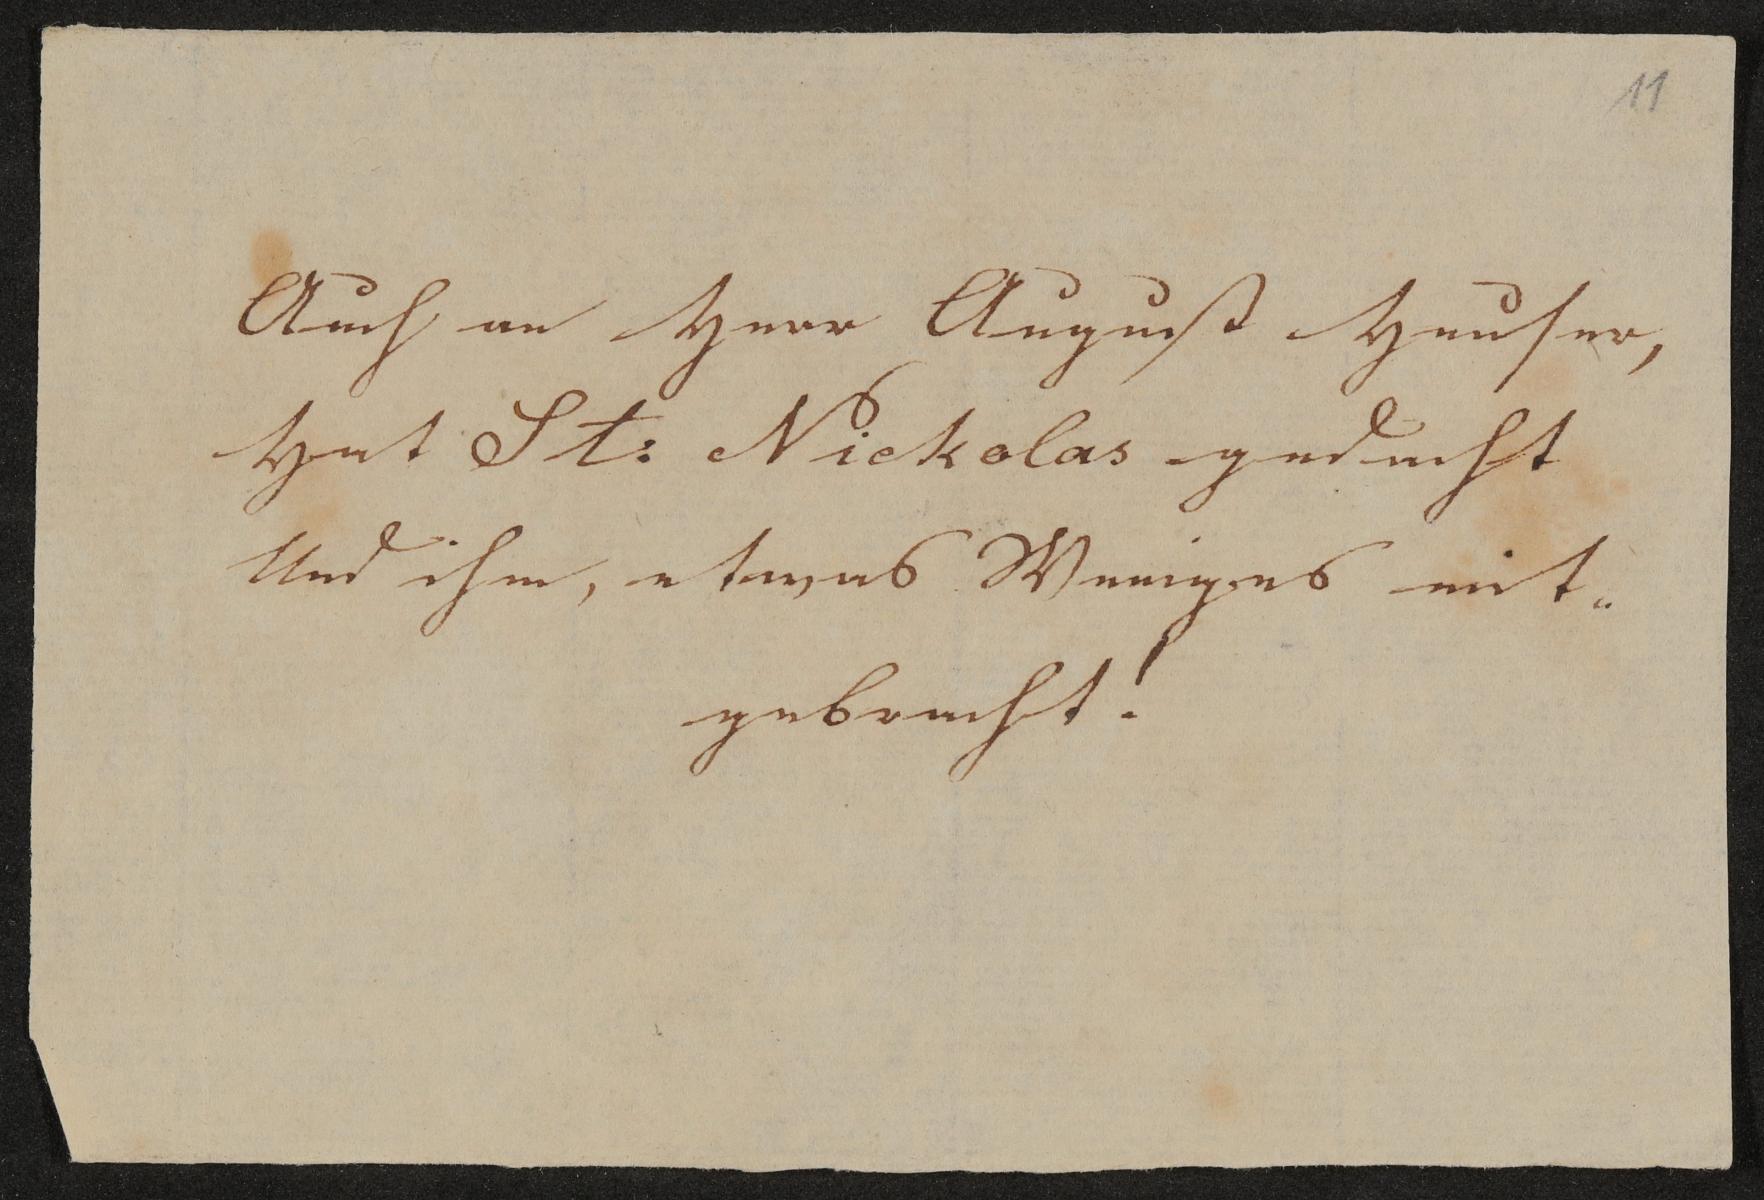 11
Auch an Herr August Heuser,
Hat St: Nickolas gedacht
Und ihm, etwas Weniges mit„
gebracht!